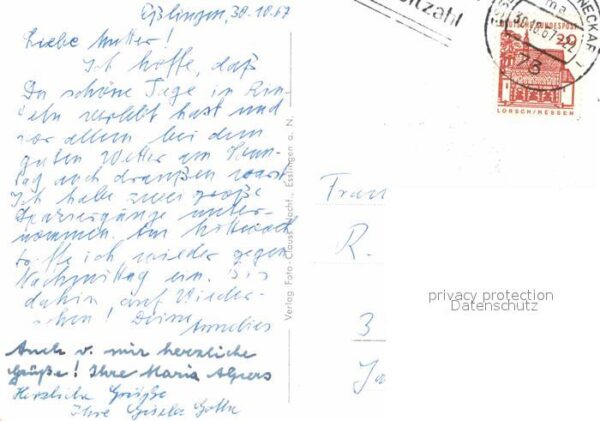 Eßlingen, 30.10.67
Liebe Mutter!
Ich hoffe, daß
Du schöne Tage in Rin-
teln verlebt hast und
vor allem bei dem
guten Wetter am Sonn-
tag auch draußen warst.
Ich habe zwei große
Spaziergänge unter-
nommen. Am Mittwoch
treffe ich wieder gegen
Nachmittag ein. Bis
dahin auf Wieder-
sehen! Deine
Annelies
Auch v. mir herzliche
Grüße! Ihre Maria Alpers
Herzliche Grüße
Ihre Gisela
Verlag Foto Clauss Nacht., Esslingen a. N.
Postleitzahl
NECKAR
30.10.67-22
73
DEUTSCHE BUNDESPOST
20
LORSCH/HESSEN
Frau
R.
3
privacy protection
Datenschutz